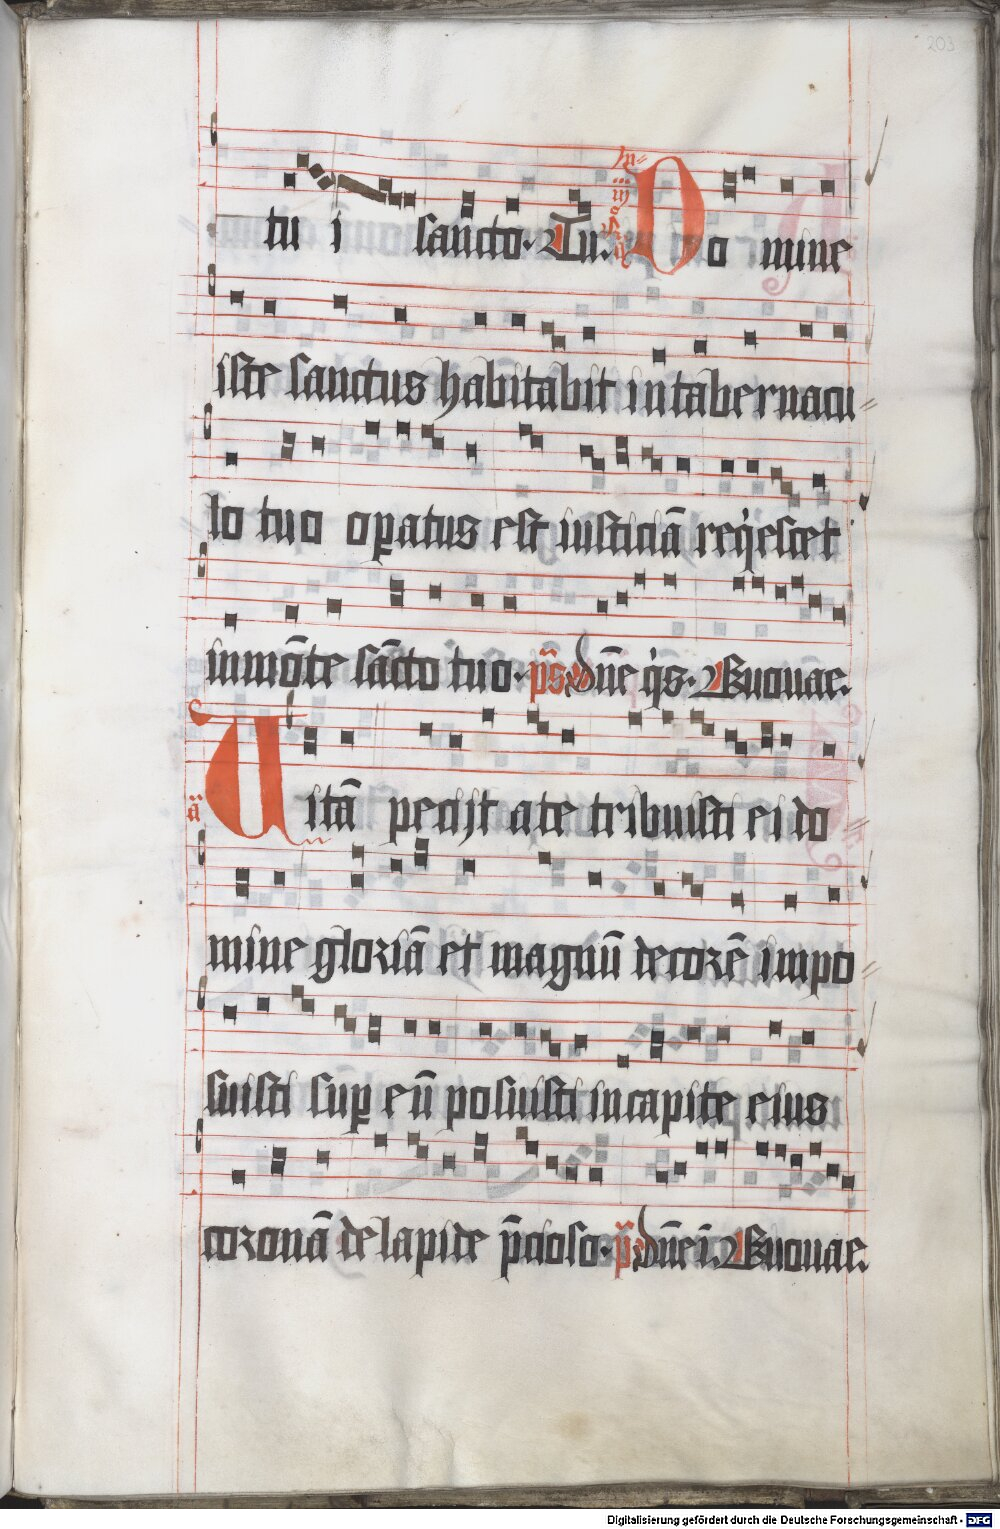 203
tu i sancto. Tu. In iij nocte Domine
iste sanctus habitabit in tabernacu=
lo tuo opatus est iusticiā reqͥescet
in mōte sācto tuo. p̄s dn̄e qͥs. Euouae.
ā Uitā pecijt a te tribuisti ei do=
mine gloriā et magnū decorē impo=
suisti sup eū posuisti in capite eius
coronā de lapide p̄cioso. p̄s dn̄e ī. Euouae.
Digitalisierung gefördert durch die Deutsche Forschungsgemeinschaft - DFG